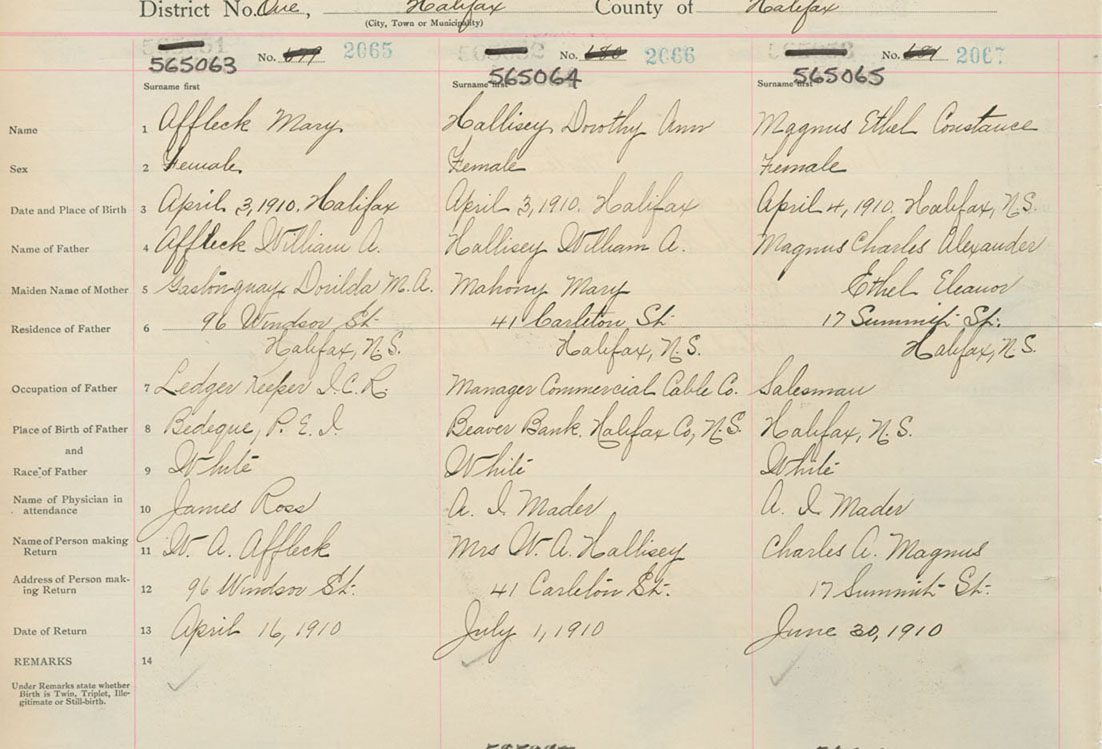 District No. One, Halifax County of Halifax
(City, Town or Municipality)
No. 2065 No. 2066 No. 2067
565063 565064 565065
Surname first Surname first Surname first
Name 1 Affleck Mary Hallisey Dorothy Ann Magnus Ethel Constance
Sex 2 Female Female Female
Date and Place of Birth 3 April 3, 1910. Halifax April 3, 1910. Halifax April 4, 1910. Halifax, N.S.
Name of Father 4 Affleck William A. Hallisey William A. Magnus Charles Alexander
Maiden Name of Mother 5 Gastonguay Dorilda M. A. Mahony Mary Ethel Eleanor
Residence of Father 6 96 Windsor St. 41 Carleton St. 17 Summit St.
Halifax, N.S. Halifax, N.S. Halifax, N.S.
Occupation of Father 7 Ledger Keeper I.C.R. Manager Commercial Cable Co. Salesman
Place of Birth of Father 8 Bedeque, P.E.I. Beaver Bank. Halifax Co, N.S. Halifax, N.S.
and
Race of Father 9 White White White
Name of Physician in
attendance 10 James Ross A. I. Mader A. I. Mader
Name of Person making
Return 11 W. A. Affleck Mrs W. A. Hallisey Charles A. Magnus
Address of Person mak-
ing Return 12 96 Windsor St. 41 Carleton St. 17 Summit St.
Date of Return 13 April 16, 1910 July 1, 1910 June 30, 1910
REMARKS 14
Under Remarks state whether
Birth is Twin, Triplet, Ille-
gitimate or Still-birth.